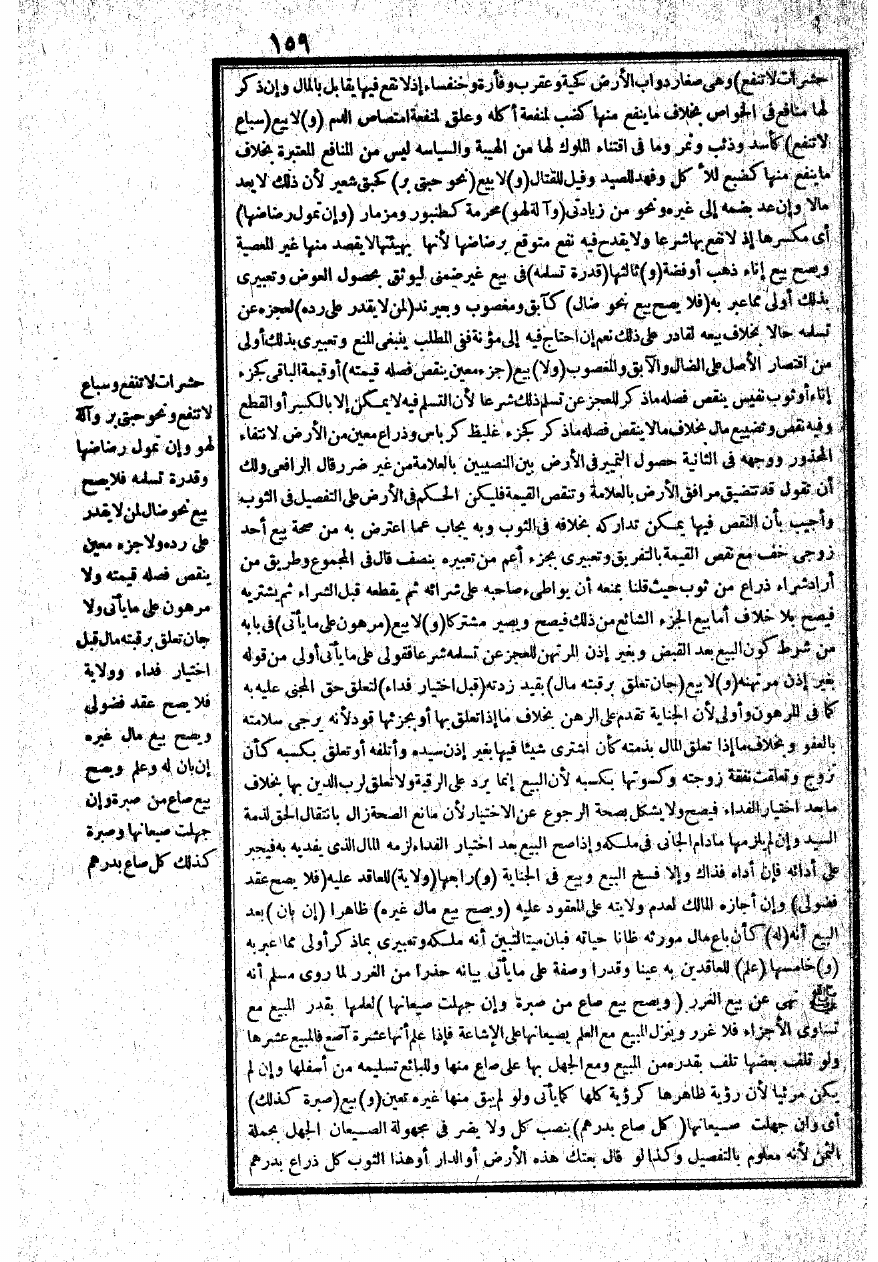 ١٥٩
حشرات لا تنفع) وهى صغار دواب الأرض كحية وعقرب وفأرة وخنفساء إذ لا نفع فيها يقابل بالمال وإن ذكر
لها منافع فى الخواص بخلاف ما ينفع منها كضب لمنفعة أكله وعلق لمنفعة امتصاص الدم (و) لا بيع (سباع
لا تنفع) كأسد وذئب ونمر وما فى اقتناء الملوك لها من الهيبة والسياسه ليس من المنافع المعتبرة بخلاف
ما ينفع منها كضبع للأكل وفهد للصيد وفيل للقتال (و) لا بيع (نحو حبتى بر) كحبتى شعير لأن ذلك لا يعد
مالا وإن عد بضمه إلى غيره ونحو من زيادتى (وآلة لهو) محرمة كطنبور ومزمار (وإن تمول رضاضها)
أى مكسرها إذ لا نفع بها شرعا ولا يقدح فيه نفع متوقع برضاضها لأنها بهيئتها لا يقصد منها غير المعصية
ويصح بيع إناء ذهب أو فضة (و) ثالثها (قدرة تسلمه) فى بيع غير ضمنى ليوثق بحصول العوض وتعبيرى
بذلك أولى مما عبر به (فلا يصح بيع نحو ضال) كآبق ومغصوب وبعير ند (لمن لا يقدر على رده) لعجزه عن
تسلمه حالا بخلاف بيعه لقادر على ذلك نعم إن احتاج فيه إلى مؤنة ففى المطلب ينبغى المنع وتعبيرى بذلك أولى
من اقتصار الأصل على الضال والآبق والمغصوب (ولا) بيع (جزء معين ينقص فصله قيمته) أو قيمة الباقى كجزء
إناء أو ثوب نفيس ينقص فصله ما ذكر للعجز عن تسلم ذلك شرعا لأن التسلم فيه لا يمكن إلا بالكسر أو القطع
وفيه نقص وتضييع مال بخلاف ما لا ينقص فصله ما ذكر كجزء غليظ كرباس وذراع معين من الأرض لانتفاء
المحذور ووجهه فى الثانية حصول التمييز فى الأرض بين النصيبين بالعلامة من غير ضرر قال الرافعى ولك
أن تقول قد تتضيق مرافق الأرض بالعلامة وتنقص القيمة فليكن الحكم فى الأرض على التفصيل فى الثوب
وأجيب بأن النقص فيها يمكن تداركه بخلافه فى الثوب وبه يجاب عما اعترض به من صحة بيع أحد
زوجى خف مع نقص القيمة بالتفريق وتعبيرى بجزء أعم من تعبيره بنصف قال فى المجموع وطريق من
أراد شراء ذراع من ثوب حيث قلنا بمنعه أن يواطىء صاحبه على شرائه ثم يقطعه قبل الشراء ثم يشتريه
فيصح بلا خلاف أما بيع الجزء الشائع من ذلك فيصح ويصير مشتركا (و) لا بيع (مرهون على ما يأتى) فى بابه
من شرط كون البيع بعد القبض وبغير إذن المرتهن للعجز عن تسلمه شرعا فقولى على ما يأتى أولى من قوله
بغير إذن مرتهنه (و) لا بيع (جان تعلق برقبته مال) بقيد زدته (قبل اختيار فداء) لتعلق حق المجنى عليه به
كما فى المرهون وأولى لأن الجناية تقدم على الرهن بخلاف ما إذا تعلق بها أو بجزئها قود لأنه يرجى سلامته
بالعفو وبخلاف ما إذا تعلق المال بذمته كأن اشترى شيئا فيها بغير إذن سيده وأتلفه أو تعلق بكسبه كأن
تزوج وتعلقت نفقة زوجته وكسوتها بكسبه لأن البيع إنما يرد على الرقبة ولا تعلق لرب الدين بها بخلاف
ما بعد اختيار الفداء فيصح ولا يشكل بصحة الرجوع عن الاختيار لأن مانع الصحة زال بانتقال الحق لذمة
السيد وإن لم يلزمها مادام الجانى فى ملكه وإذا صح البيع بعد اختيار الفداء لزمه المال الذى يفديه به فيجبر
على أدائه فإن أداه فذاك وإلا فسخ البيع وبيع فى الجناية (و) رابعها (ولاية) للعاقد عليه (فلا يصح عقد
فضولى) وإن أجازه المالك لعدم ولايته على المعقود عليه (ويصح بيع مال غيره) ظاهرا (إن بان) بعد
البيع أنه (له) كأن باع مال مورثه ظانا حياته فبان ميتا لتبين أنه ملكه وتعبيرى بما ذكر أولى مما عبر به
(و) خامسها (علم) للعاقدين به عينا وقدرا وصفة على ما يأتى بيانه حذرا من الغرر لما روى مسلم أنه
ﷺ نهى عن بيع الغرر (ويصح بيع صاع من صبرة وإن جهلت صيعانها) لعلمهما بقدر المبيع مع
تساوى الأجزاء فلا غرر وينزل المبيع مع العلم بصيعانها على الإشاعة فإذا علم أنها عشرة آصع فالمبيع عشرها
ولو تلف بعضها تلف بقدره من المبيع ومع الجهل بها على صاع منها وللبائع تسليمه من أسفلها وإن لم
يكن مرئيا لأن رؤية ظاهرها كرؤية كلها كما يأتى ولو لم يبق منها غيره تعين (و) بيع (صبرة كذلك)
أى وإن جهلت صيعانها (كل صاع بدرهم) بنصب كل ولا يضر فى مجهولة الصيعان الجهل بجملة
الثمن لأنه معلوم بالتفصيل وكذا لو قال بعتك هذه الأرض أو الدار أو هذا الثوب كل ذراع بدرهم
حشرات لا تنفع وسباع
لا تنفع ونحو حبتى بر وآلة
لهو وإن تمول رضاضها
وقدرة تسلمه فلا يصح
بيع نحو ضال لمن لا يقدر
على رده ولا جزء معين
ينقص فصله قيمته ولا
مرهون على ما يأتى ولا
جان تعلق برقبته مال قبل
اختيار فداء وولاية
فلا يصح عقد فضولى
ويصح بيع مال غيره
إن بان له وعلم ويصح
بيع صاع من صبرة وإن
جهلت صيعانها وصبرة
كذلك كل صاع بدرهم